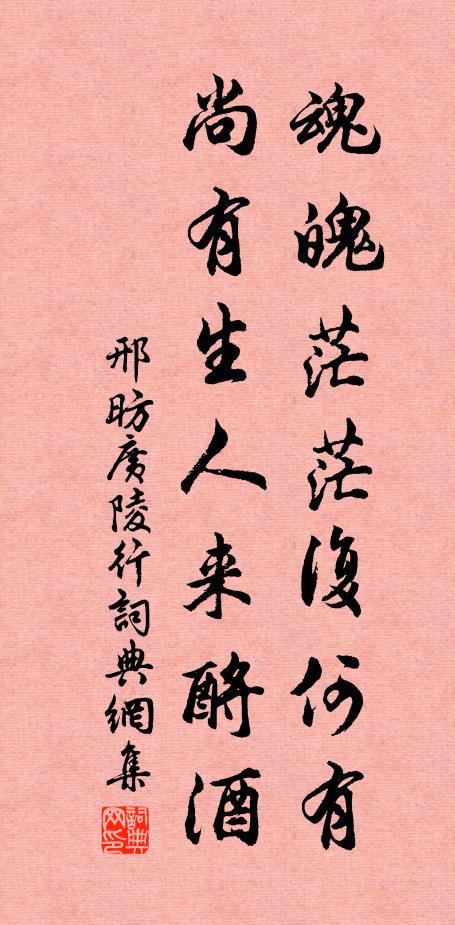 魂魄茫茫復何有
尚有生人来酹酒
邢昉廣陵行詞典網集
詞典网印